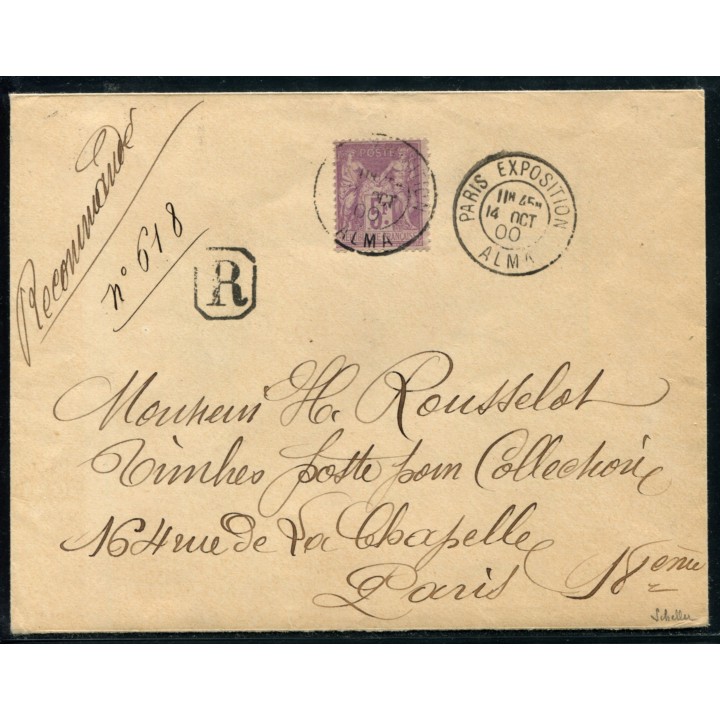 Recommandé
n° 618
R
POSTE
ALMA
PARIS EXPOSITION
11H 45M
14 OCT
00
ALMA
Monsieur H. Rousselot
Timbres poste pour Collections
164 rue de La Chapelle
Paris 18ème
Scheller